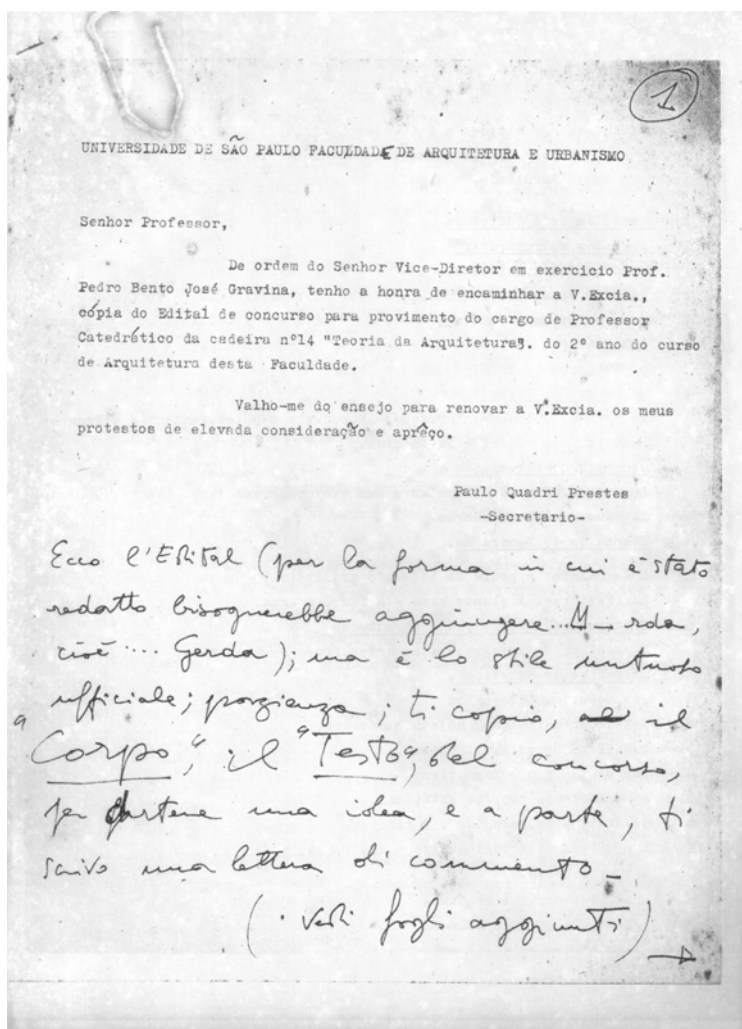 1
UNIVERSIDADE DE SÃO PAULO FACULDADE DE ARQUITETURA E URBANISMO
Senhor Professor,
De ordem do Senhor Vice-Diretor em exercicio Prof.
Pedro Bento José Gravina, tenho a honra de encaminhar a V.Excia.,
cópia do Edital de concurso para provimento do cargo de Professor
Catedrático da cadeira nº14 "Teoria da Arquitetura". do 2º ano do curso
de Arquitetura desta Faculdade.
Valho-me do ensejo para renovar a V.Excia. os meus
protestos de elevada consideração e aprêço.
Paulo Quadri Prestes
-Secretario-
Ecco l'Edital (per la forma in cui è stato
redatto bisognerebbe aggiungere... M_rda,
cioè .... Gerda); ma è lo stile untuoso
ufficiale; pazienza; ti copio, il
"Corpo", il "Testo", del concorso,
per una idea, e a parte, ti
scrivo una lettera di commento_
(vedi fogli aggiunti)